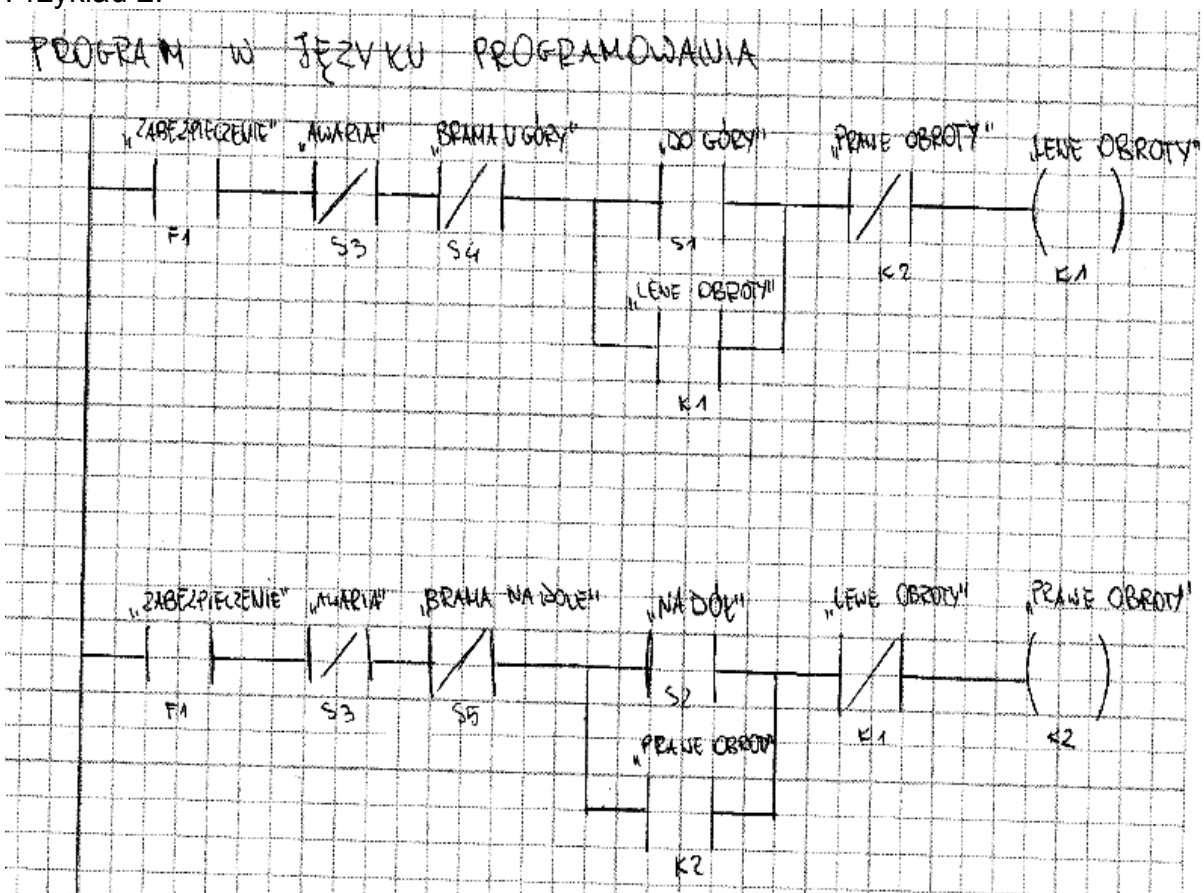 Przykład 2.
PROGRAM W JĘZYKU PROGRAMOWANIA
„ZABEZPIECZENIE" „AWARIA" „BRAMA U GÓRY" „DO GÓRY" „PRAWE OBROTY" „LEWE OBROTY"
F1 S3 S4 S1 K2 K1
„LEWE OBROTY"
K1
„ZABEZPIECZENIE" „AWARIA" „BRAMA NA DOLE" „NA DÓŁ" „LEWE OBROTY" „PRAWE OBROTY"
F1 S3 S5 S2 K1 K2
„PRAWE OBROTY
K2